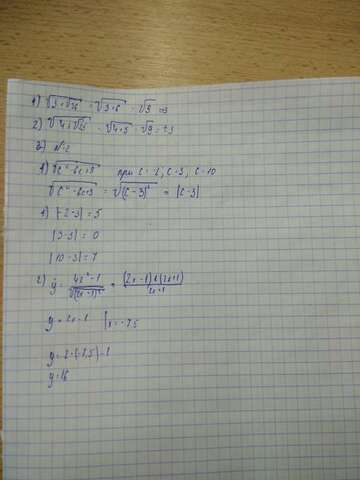 1) √(3+√36) = √(3+6) = √9 = 3
2) √(4+√25) = √(4+5) = √9 = ±3
3) N=2
1) √(c²-6c+9) при c=-2, c=3, c=10
√(c²-6c+9) = √((c-3)²) = |c-3|
1) |-2-3| = 5
|3-3| = 0
|10-3| = 7
2) y = (4x²-1)/√((2x+1)²) = (2x-1)(2x+1)/(2x+1)
y = 2x-1 | x=-7,5
y = 2·(-7,5)-1
y = 16